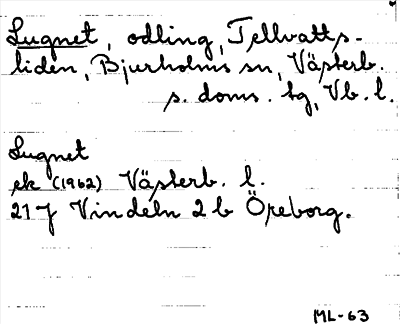 Lugnet, odling, Tellvatts-
liden, Bjurholms sn, Västerb.
s. doms. tg, Vb. l.
Lugnet
ek (1962) Västerb. l.
21 J Vindeln 2 b Öreborg.
ML-63